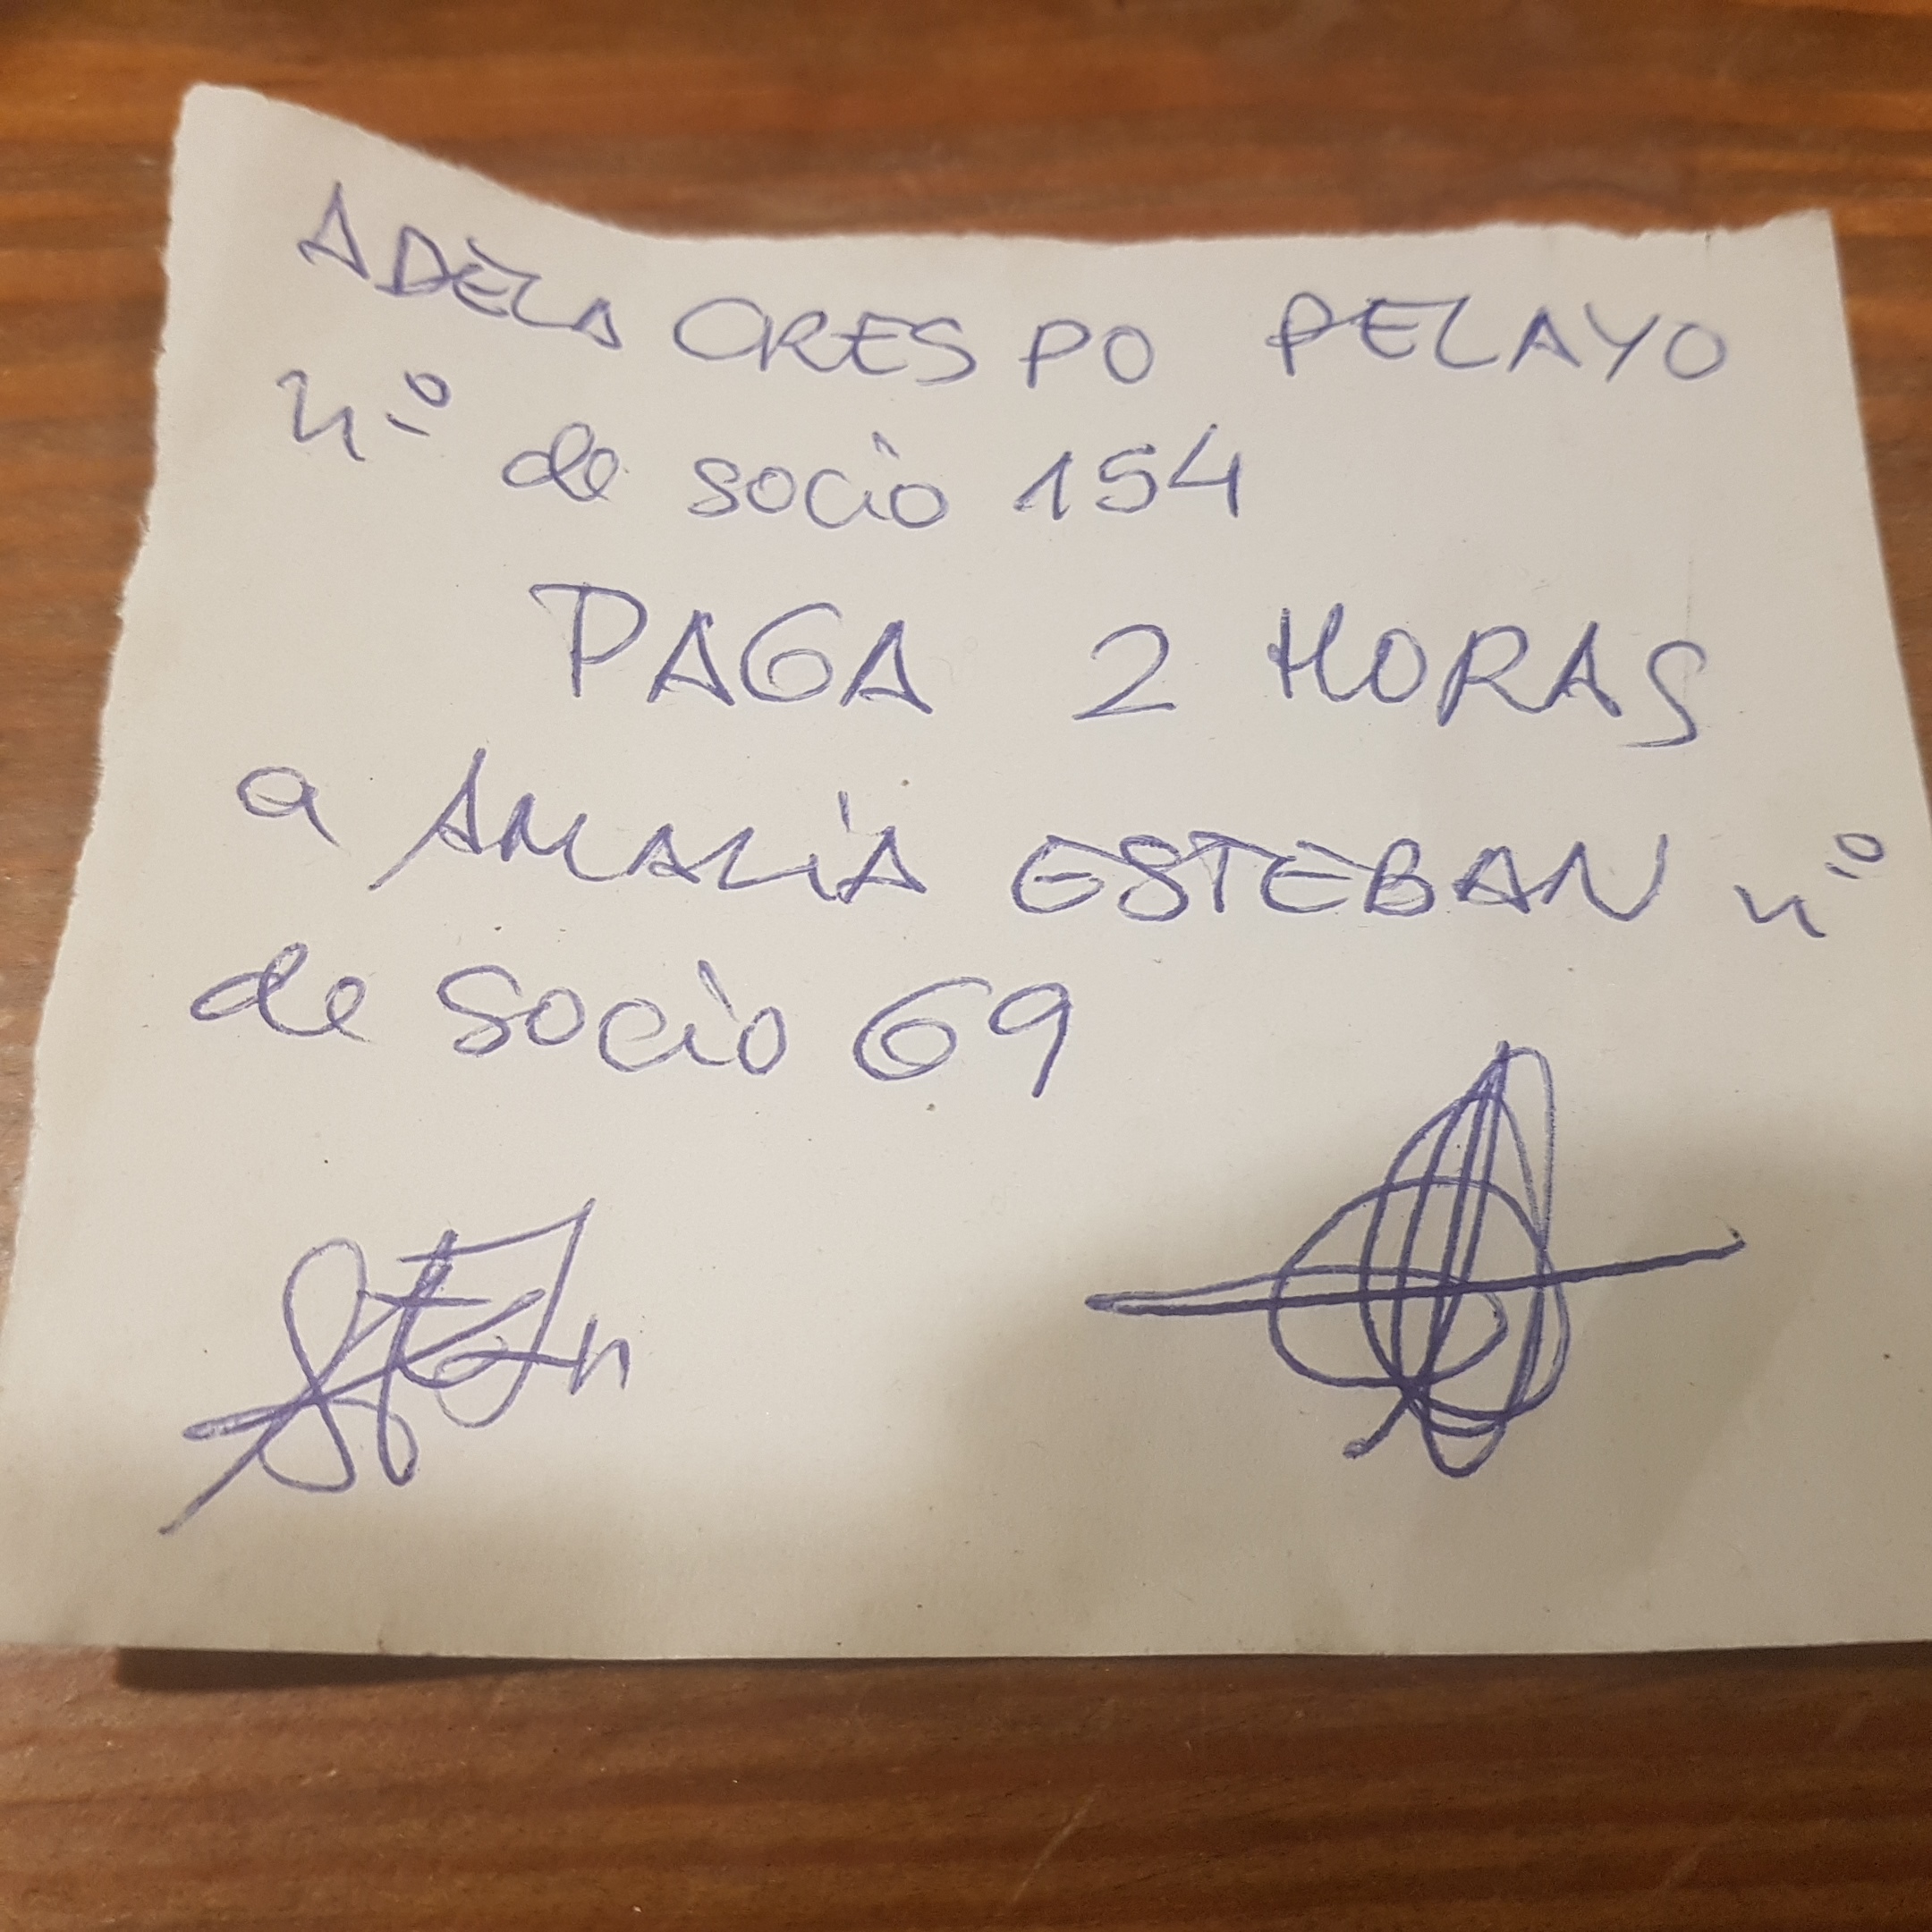 ADELA CRESPO PELAYO
nº de socio 154
PAGA 2 HORAS
a AMALIA ESTEBAN nº
de socio 69